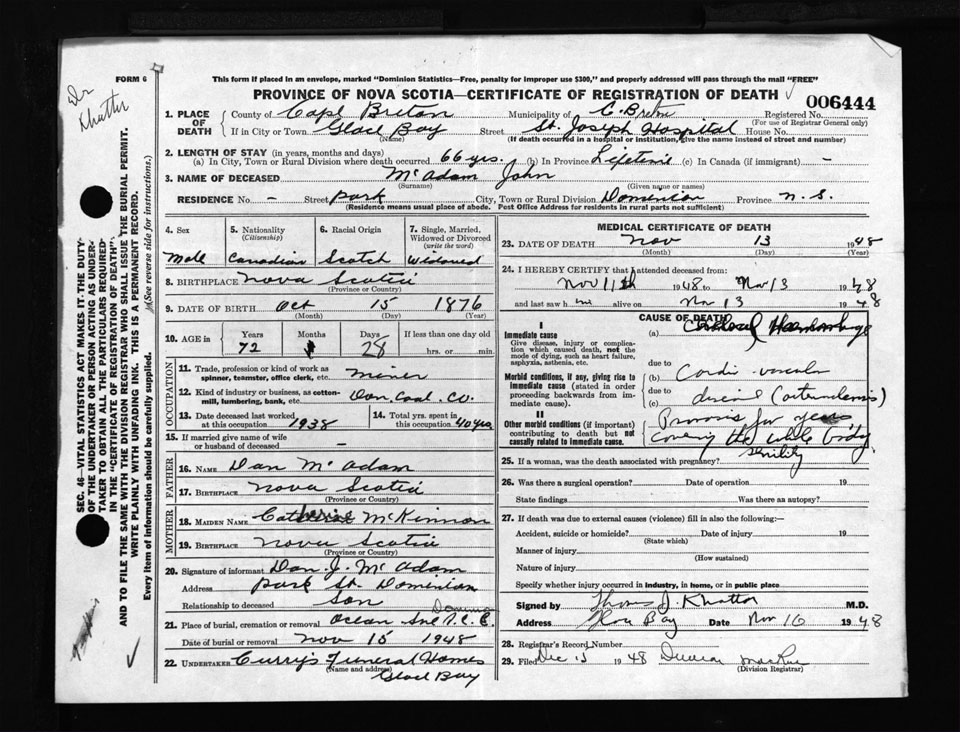 FORM 6
This form if placed in an envelope, marked "Dominion Statistics—Free, penalty for improper use $300," and properly addressed will pass through the mail "FREE"
PROVINCE OF NOVA SCOTIA—CERTIFICATE OF REGISTRATION OF DEATH
006444
Dr Khattar
1. PLACE OF DEATH
County of Cape Breton Municipality of C. Breton Registered No.
(For use of Registrar General only)
If in City or Town Glace Bay Street St. Joseph Hospital House No.
(Name) (If death occurred in a hospital or institution, give the name instead of street and number)
2. LENGTH OF STAY (in years, months and days)
(a) In City, Town or Rural Division where death occurred 66 yrs. (b) In Province Lifetime (c) In Canada (if immigrant) —
3. NAME OF DECEASED McAdam John
(Surname) (Given name or names)
RESIDENCE No. — Street Park City, Town or Rural Division Dominion Province N.S.
(Residence means usual place of abode. Post Office Address for residents in rural parts not sufficient)
4. Sex
Male
5. Nationality
(Citizenship)
Canadian
6. Racial Origin
Scotch
7. Single, Married, Widowed or Divorced
(write the word)
Widowed
8. BIRTHPLACE Nova Scotia
(Province or Country)
9. DATE OF BIRTH Oct 15 1876
(Month) (Day) (Year)
10. AGE in
Years Months Days If less than one day old
72 28 hrs. or min.
OCCUPATION
11. Trade, profession or kind of work as spinner, teamster, office clerk, etc. Miner
12. Kind of industry or business, as cotton-mill, lumbering, bank, etc. Dom. Coal. Co.
13. Date deceased last worked at this occupation 1938
14. Total yrs. spent in this occupation 40 yrs
15. If married give name of wife or husband of deceased —
FATHER
16. NAME Dan McAdam
17. BIRTHPLACE Nova Scotia
(Province or Country)
MOTHER
18. MAIDEN NAME Catherine McKinnon
19. BIRTHPLACE Nova Scotia
(Province or Country)
20. Signature of informant Dan J. McAdam
Address Park St. Dominion
Relationship to deceased Son
21. Place of burial, cremation or removal
Date of burial or removal Nov 15 1948
22. UNDERTAKER Curry's Funeral Homes
(Name and address)
Glace Bay
MEDICAL CERTIFICATE OF DEATH
23. DATE OF DEATH Nov 13 1948
(Month) (Day) (Year)
24. I HEREBY CERTIFY that I attended deceased from:
Nov 11th 1948 to Nov 13 1948
and last saw him alive on Nov 13 1948
CAUSE OF DEATH
I
Immediate cause
Give disease, injury or complication which caused death, not the mode of dying, such as heart failure, asphyxia, asthenia, etc.
(a) Cerebral Haemorrhage
due to
Morbid conditions, if any, giving rise to immediate cause (stated in order proceeding backwards from immediate cause).
(b) Cardio vascular
due to
(c) disease
II
Other morbid conditions (if important) contributing to death but not causally related to immediate cause.
Psoriasis for years
covering the whole body
Senility
25. If a woman, was the death associated with pregnancy?
26. Was there a surgical operation? Date of operation 19
State findings Was there an autopsy?
27. If death was due to external causes (violence) fill in also the following:—
Accident, suicide or homicide? Date of injury 19
(State which)
Manner of injury
(How sustained)
Nature of injury
Specify whether injury occurred in industry, in home, or in public place
Signed by Thomas J. Khattar M.D.
Address Glace Bay Date Nov 16 1948
28. Registrar's Record Number
29. Filed Dec 15 1948 Duncan MacRae
(Division Registrar)
SEC. 46—VITAL STATISTICS ACT MAKES IT THE DUTY OF THE UNDERTAKER OR PERSON ACTING AS UNDERTAKER TO OBTAIN ALL THE PARTICULARS REQUIRED IN THE "CERTIFICATE OF REGISTRATION OF DEATH" AND TO FILE THE SAME WITH THE DIVISION REGISTRAR WHO SHALL ISSUE THE BURIAL PERMIT.
WRITE PLAINLY WITH UNFADING INK. THIS IS A PERMANENT RECORD.
Every item of information should be carefully supplied. (See reverse side for instructions.)